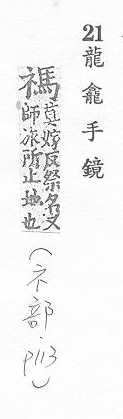 21 龍龕手鏡
禡 莫嫁反祭名又
師旅所止地也
(ネ部 p113)